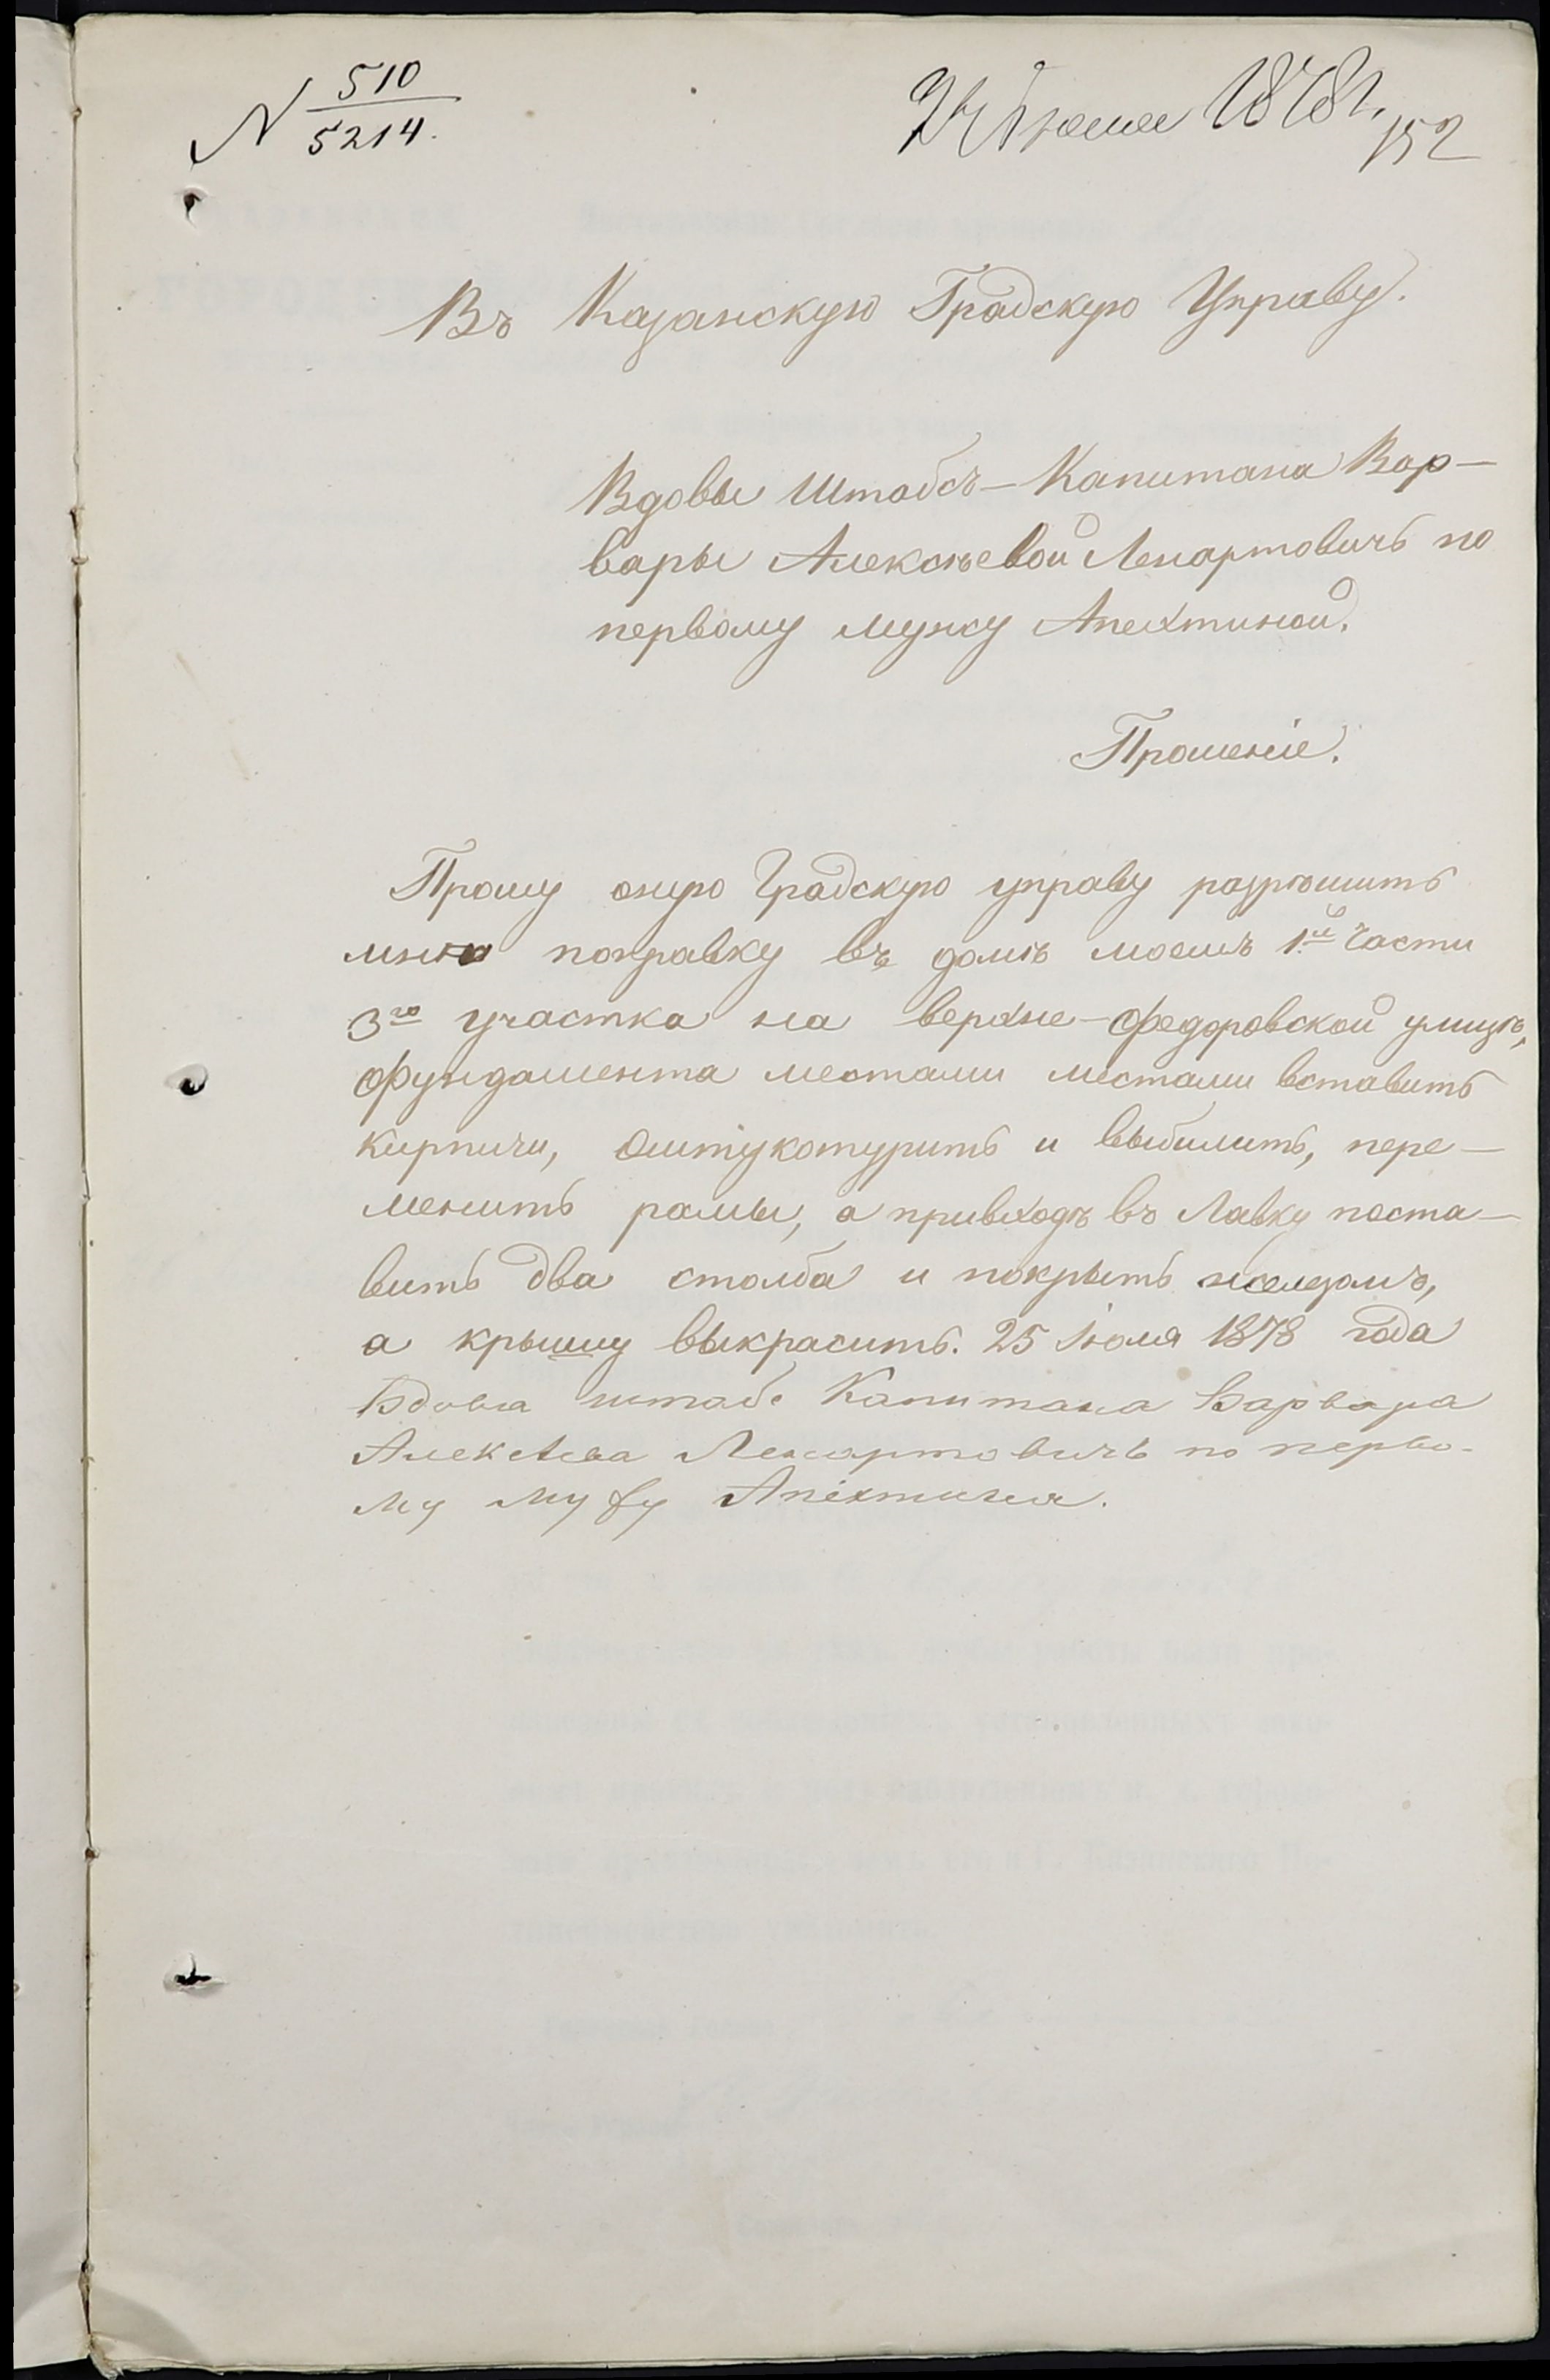 N 510
5214.
Июля 1878 г.
152
Въ Казанскую Градскую Управу.
Вдовы Штабсъ-Капитана Вар-
вары Алексѣевой Ленартовичъ по
первому мужу Апехтиной.
Прошеніе.
Прошу оную Градскую управу разрѣшить
мнѣ поправку въ домѣ моемъ 1.ой Части
3го участка на верхне-Федоровской улицѣ,
Фундамента местами местами вставить
кирпичи, оштукотурить и выбилить, пере-
менить рамы, а привходѣ въ Лавку поста-
вить два столба и покрыть железомъ,
а крышу выкрасить. 25 Июля 1878 года
Вдова штабс Капитана Варвара
Алексѣева Ленартовичъ по перво-
му мужу Апехтина.